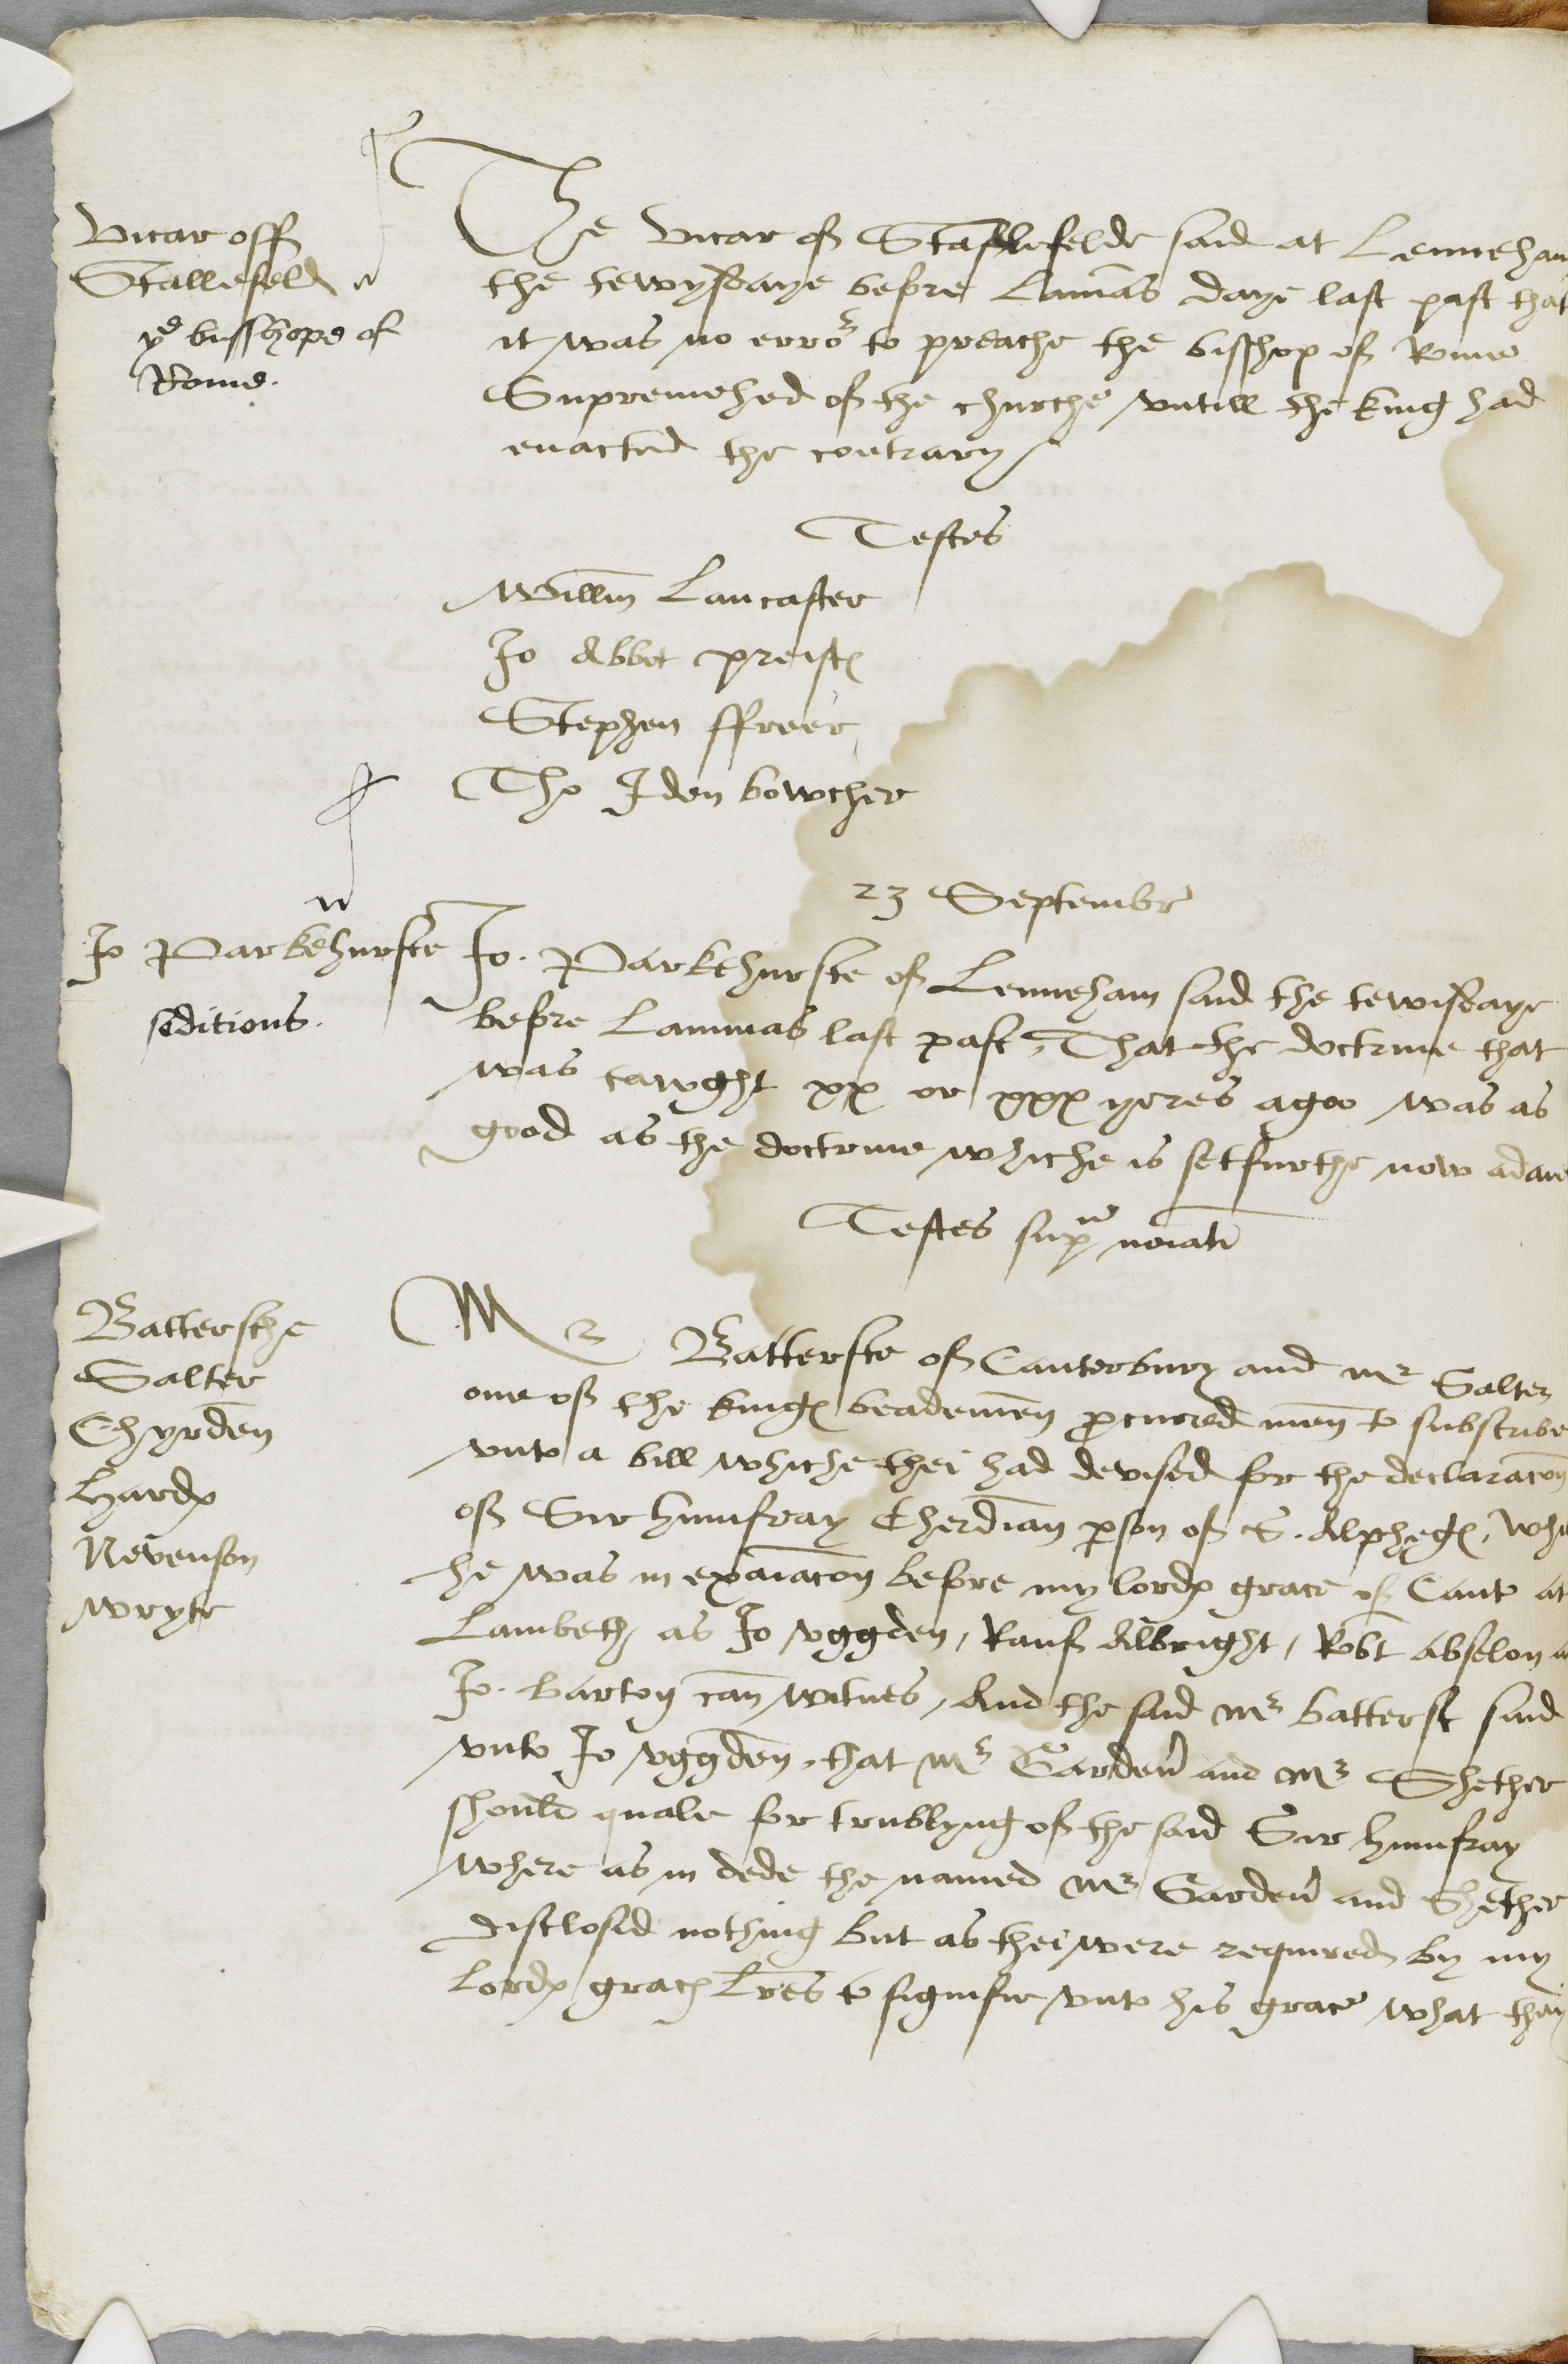 Vicar off
Stallefeld
yͤ busshope of
Rome.
The vicar of Stallefelde said at Lenneham
the tewysdaye before Lam̄as daye last past that
it was no erroʳ to preache the bisshop of Rome
Supremehed of the churche vntill the king had
enacted the contrary
Testes
Willm̄ Lancaster
Jo Abbet preist
Stephen ffreer
Tho Iden bowcher
23 Septembr
Jo Parkehurste
seditious.
Jo. Parkehurste of Lenneham said the tewisdaye
before Lammas last past, That the doctrine that
was tawght xx or xxx yeres agoo was as
good as the doctrine whiche is setfurthe now adaie
Testes supᵃ noīati
Battersche
Salter
Chyrden
Hardx
Nevenson
wryte
Mʳ Batterste of Canterbury and mʳ Salter
one of the kinges beademen̄ procured men̄ to subscribe
vnto a bill whiche thei had devised for the declaraco͞n
of Sir Humfray Cherdian p̱son of S. Alpheges, whe
he was in exaīaco͞n before my lordes grace of Cant at
Lambeth, as Jo vggden, Rauf Albright, Robt abselon a
Jo. Barton can̄ witnes, And the said mʳ batterst said
vnto Jo vggden̄, that mʳ Garden̄ and mʳ Shether
should quale for trublyng of the said Sir Humfray
where as in dede the named mʳ Garden̄ and Shether
disclosid nothing but as thei were required by my
lordes graces lr̄es to signifie vnto his grace what thei